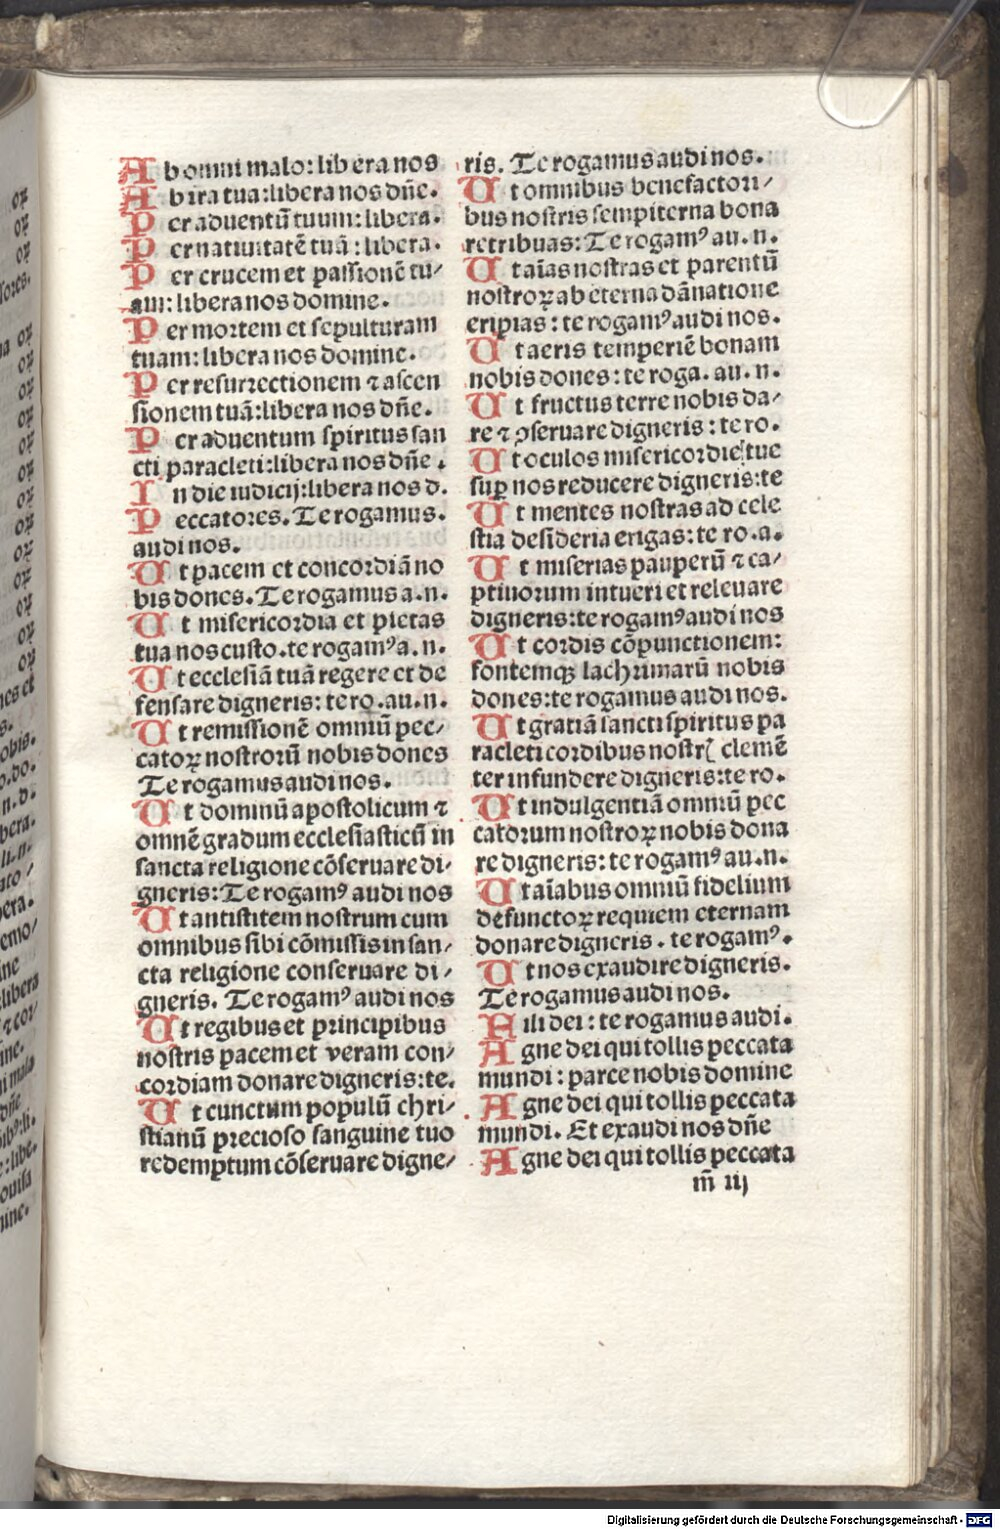 Ab omni malo: libera nos
Ab ira tua: libera nos dñe.
Per aduentũ tuum: libera.
Per natiuitatẽ tuã: libera.
Per crucem et passionẽ tu/
am: libera nos domine.
Per mortem et sepulturam
tuam: libera nos domine.
Per resurrectionem ⁊ ascen
sionem tuã: libera nos dñe.
Per aduentum spiritus san
cti paracleti: libera nos dñe.
In die iudicij: libera nos d.
Peccatores. Te rogamus.
audi nos.
Ut pacem et concordiã no
bis dones. Te rogamus a. n.
Ut misericordia et pietas
tua nos custo. te rogamꝰ a. n.
Ut ecclesiã tuã regere et de
fensare digneris: te ro. au. n.
Ut remissionẽ omniũ pec/
catoꝝ nostrorũ nobis dones
Te rogamus audi nos.
Ut dominũ apostolicum ⁊
omnẽ gradum ecclesiasticũ in
sancta religione cõseruare di/
gneris: Te rogamꝰ audi nos
Ut antistitem nostrum cum
omnibus sibi cõmissis in san/
cta religione conseruare di/
gneris. Te rogamꝰ audi nos
Ut regibus et principibus
nostris pacem et veram con/
cordiam donare digneris: te.
Ut cunctum populũ chri/
stianũ precioso sanguine tuo
redemptum cõseruare digne/
ris. Te rogamus audi nos.
Ut omnibus benefactori/
bus nostris sempiterna bona
retribuas: Te rogamꝰ au. n.
Ut aĩas nostras et parentũ
nostroꝝ ab eterna dãnatione
eripias: te rogamꝰ audi nos.
Ut aeris temperiẽ bonam
nobis dones: te roga. au. n.
Ut fructus terre nobis da/
re ⁊ ꝯseruare digneris: te ro.
Ut oculos misericordie tue
suꝑ nos reducere digneris: te
Ut mentes nostras ad cele
stia desideria erigas: te ro. a.
Ut miserias pauperũ ⁊ ca/
ptiuorum intueri et releuare
digneris: te rogamꝰ audi nos
Ut cordis cõpunctionem:
fontemqꝫ lachrimarũ nobis
dones: te rogamus audi nos.
Ut gratiã sancti spiritus pa
racleti cordibus nostrꝭ clemẽ
ter infundere digneris: te ro.
Ut indulgentiã omniũ pec
catorum nostroꝝ nobis dona
re digneris: te rogamꝰ au. n.
Ut aĩabus omniũ fidelium
defunctoꝝ requiem eternam
donare digneris. te rogamꝰ.
Ut nos exaudire digneris.
Te rogamus audi nos.
Fili dei: te rogamus audi.
Agne dei qui tollis peccata
mundi: parce nobis domine
Agne dei qui tollis peccata
mundi. Et exaudi nos dñe
Agne dei qui tollis peccata
m̃ iij
Digitalisierung gefördert durch die Deutsche Forschungsgemeinschaft - DFG